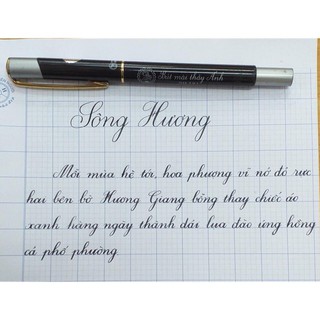 Bút mài thầy Ánh
Sông Hương
Mỗi mùa hè tới, hoa phượng vĩ nở đỏ rực
hai bên bờ Hương Giang bỗng thay chiếc áo
xanh hàng ngày thành dải lụa đào ửng hồng
cả phố phường